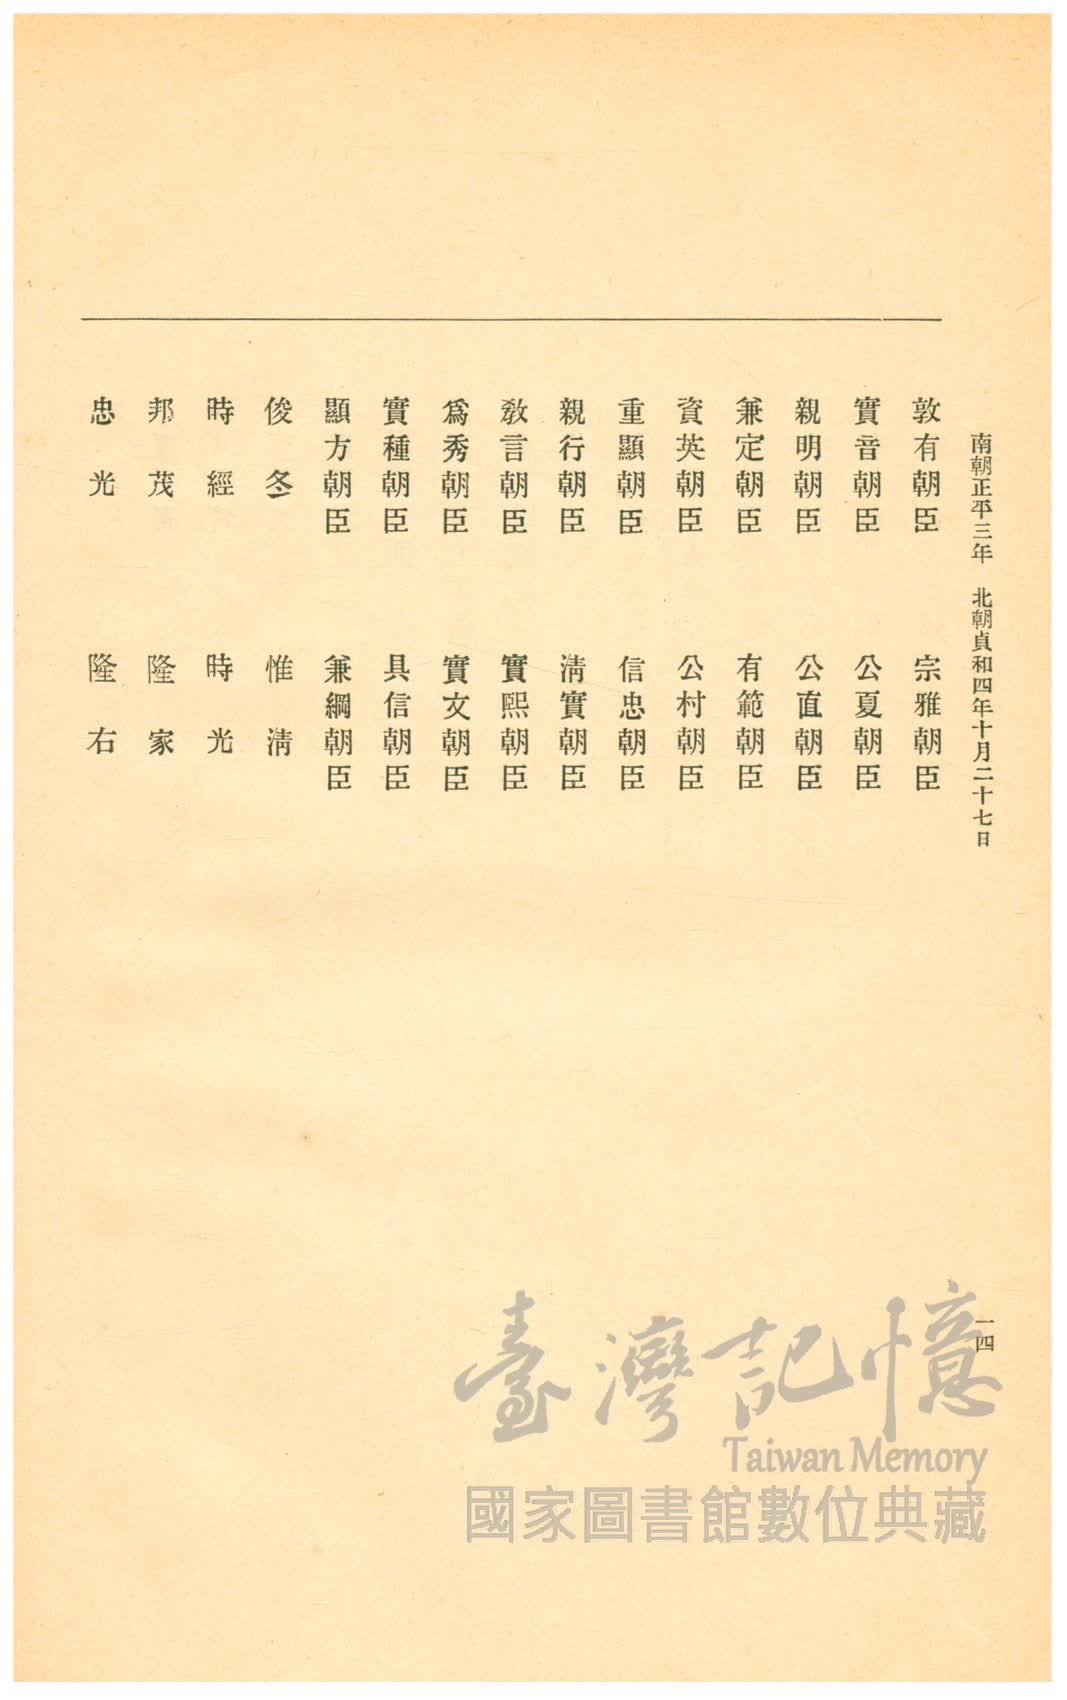 南朝正平三年　北朝貞和四年十月二十七日
一四
敦有朝臣　宗雅朝臣
實音朝臣　公夏朝臣
親明朝臣　公直朝臣
兼定朝臣　有範朝臣
資英朝臣　公村朝臣
重顯朝臣　信忠朝臣
親行朝臣　淸實朝臣
敎言朝臣　實熙朝臣
爲秀朝臣　實文朝臣
實種朝臣　具信朝臣
顯方朝臣　兼綱朝臣
俊冬　惟淸
時經　時光
邦茂　隆家
忠光　隆右
臺灣記憶
Taiwan Memory
國家圖書館數位典藏